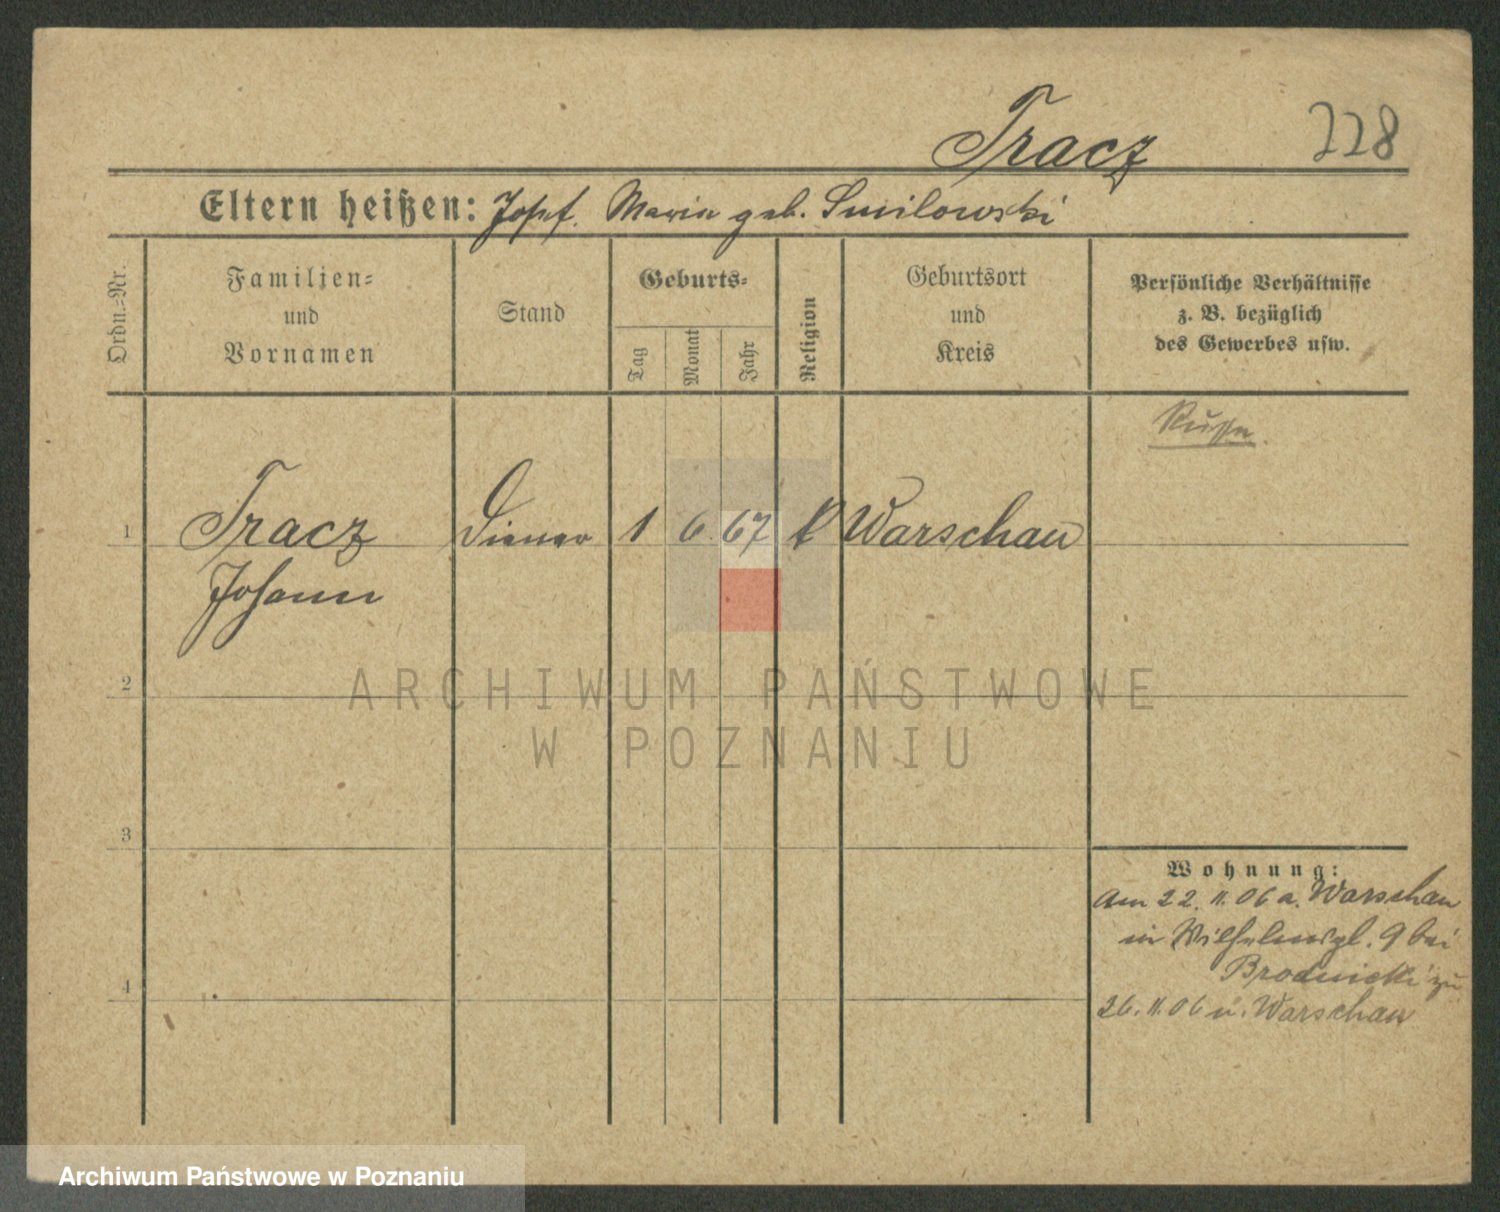 Tracz 228
Eltern heißen: Josef. Maria geb. Smilowski
Ordn.=Nr.
Familien=
und
Vornamen
Stand
Geburts=
Tag
Monat
Jahr
Religion
Geburtsort
und
Kreis
Persönliche Verhältnisse
z. B. bezüglich
des Gewerbes usw.
Russe.
1 Tracz Diener 1 6. 67 k Warschau
Johann
2
ARCHIWUM PAŃSTWOWE
W POZNANIU
3
Wohnung:
Am 22. 11. 06 a. Warschau
in Wilhelmspl. 9 bei
Brodnicki zu
4
26. 11. 06 n. Warschau
Archiwum Państwowe w Poznaniu